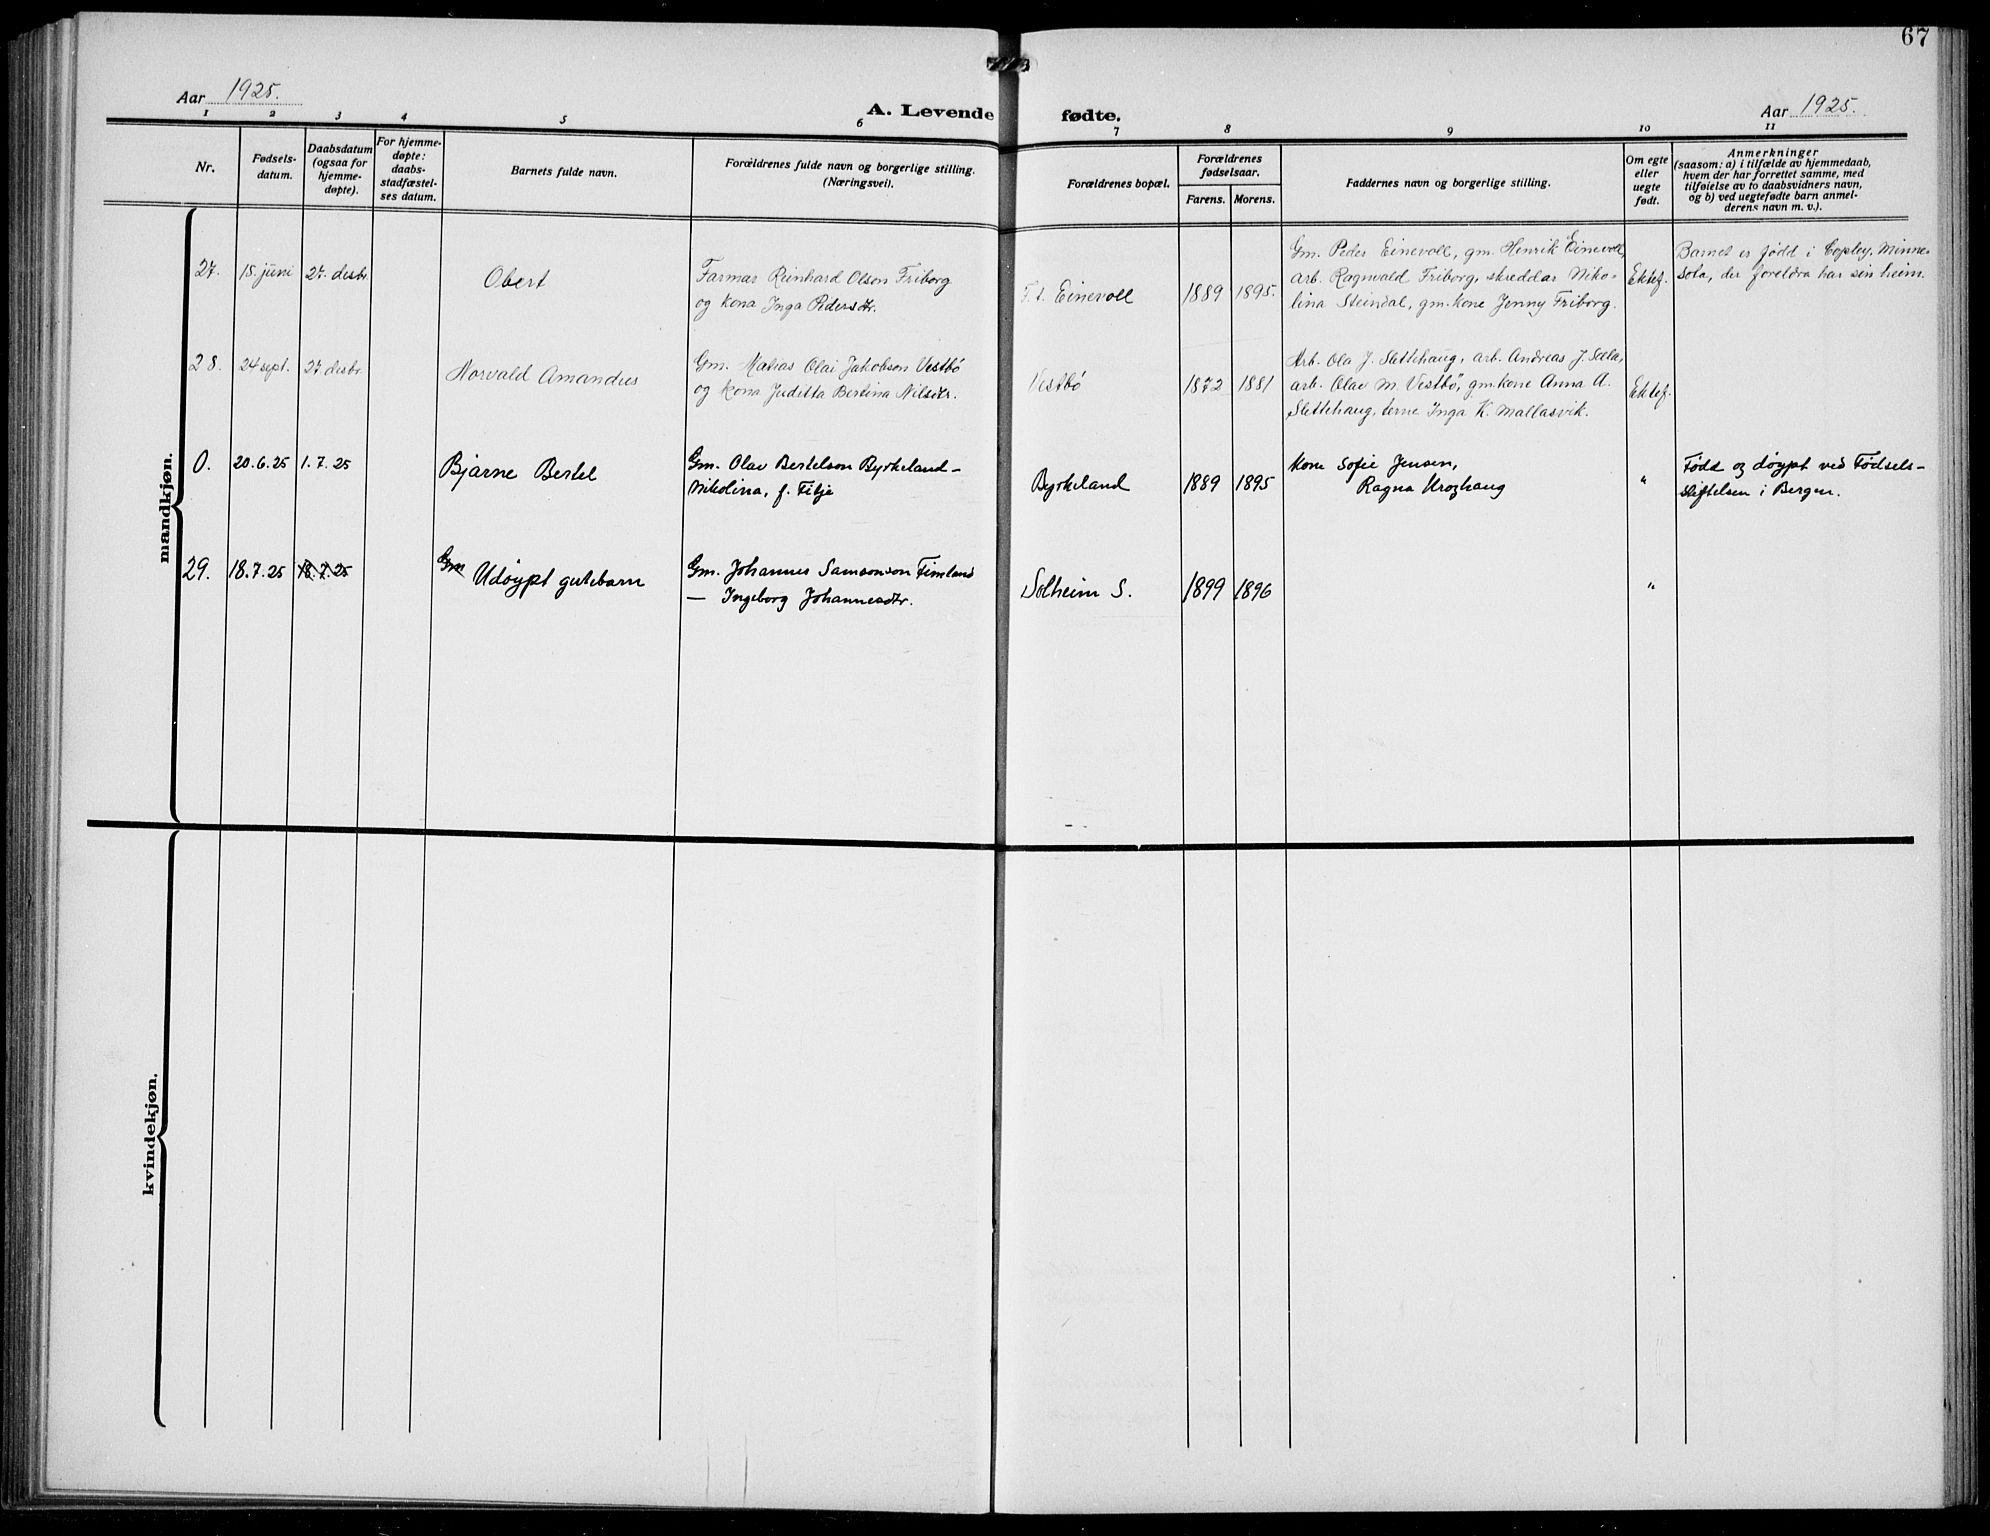 67
Aar 1925.
A. Levende fødte.
Aar 1925.
1 2 3 4 5 6 7 8 9 10 11
Nr.
Fødsels-
datum.
Daabsdatum
(ogsaa for
hjemme-
døpte).
For hjemme-
døpte:
daabs-
stadfæstel-
ses datum.
Barnets fulde navn.
Forældrenes fulde navn og borgerlige stilling.
(Næringsvei).
Forældrenes bopæl.
Forældrenes
fødselsaar.
Farens. Morens.
Faddernes navn og borgerlige stilling.
Om egte
eller
uegte
født.
Anmerkninger
(saasom: a) i tilfælde av hjemmedaab,
hvem der har forrettet samme, med
tilføielse av to daabsvidners navn,
og b) ved uegtefødte barn anmel-
derens navn m. v.).
mandkjøn.
27. 15. juni 27. desbr. Obert
Farmar Reinhard Olson Friborg
og kona Inga Pedersdtr.
F. t. Einevoll 1889 1895.
Gm. Peder Einevoll, gm. Henrik Einevoll,
arb. Ragnvald Friborg, skreddar Niko-
lina Steindal, gm. kone Jenny Friborg.
Ektef.
Barnet er fødd i Copley, Minne-
sota, der foreldra har sin heim.
28. 24 sept. 27 desbr. Norvald Amandus
Gm. Matias Olai Jakobson Vestbö
og kona Juditta Bertina Nilsdtr.
Vestbö 1872 1881
Arb. Ola J. Slettehaug, arb. Andreas J.
arb. Olav M. Vestbö, gm. kone Anna A.
Slettehaug, terne Inga K. Mallasvik.
Ektef.
0. 20.6.25 1.7.25 Bjarne Bertel
Gm. Olav Bertelson Byrkeland -
Nikolina, f. Fitje
Byrkeland 1889 1895
Kone Sofie Jensen,
Ragna
"
Född og döypt ved Födsels-
stiftelsen i Bergen.
29. 18.7.25 18.7.25 Gm Udöypt gutebarn
Gm. Johannes Samsonson Fimland
— Ingeborg Johannesdtr.
Solheim S. 1899 1896
"
kvindekjøn.